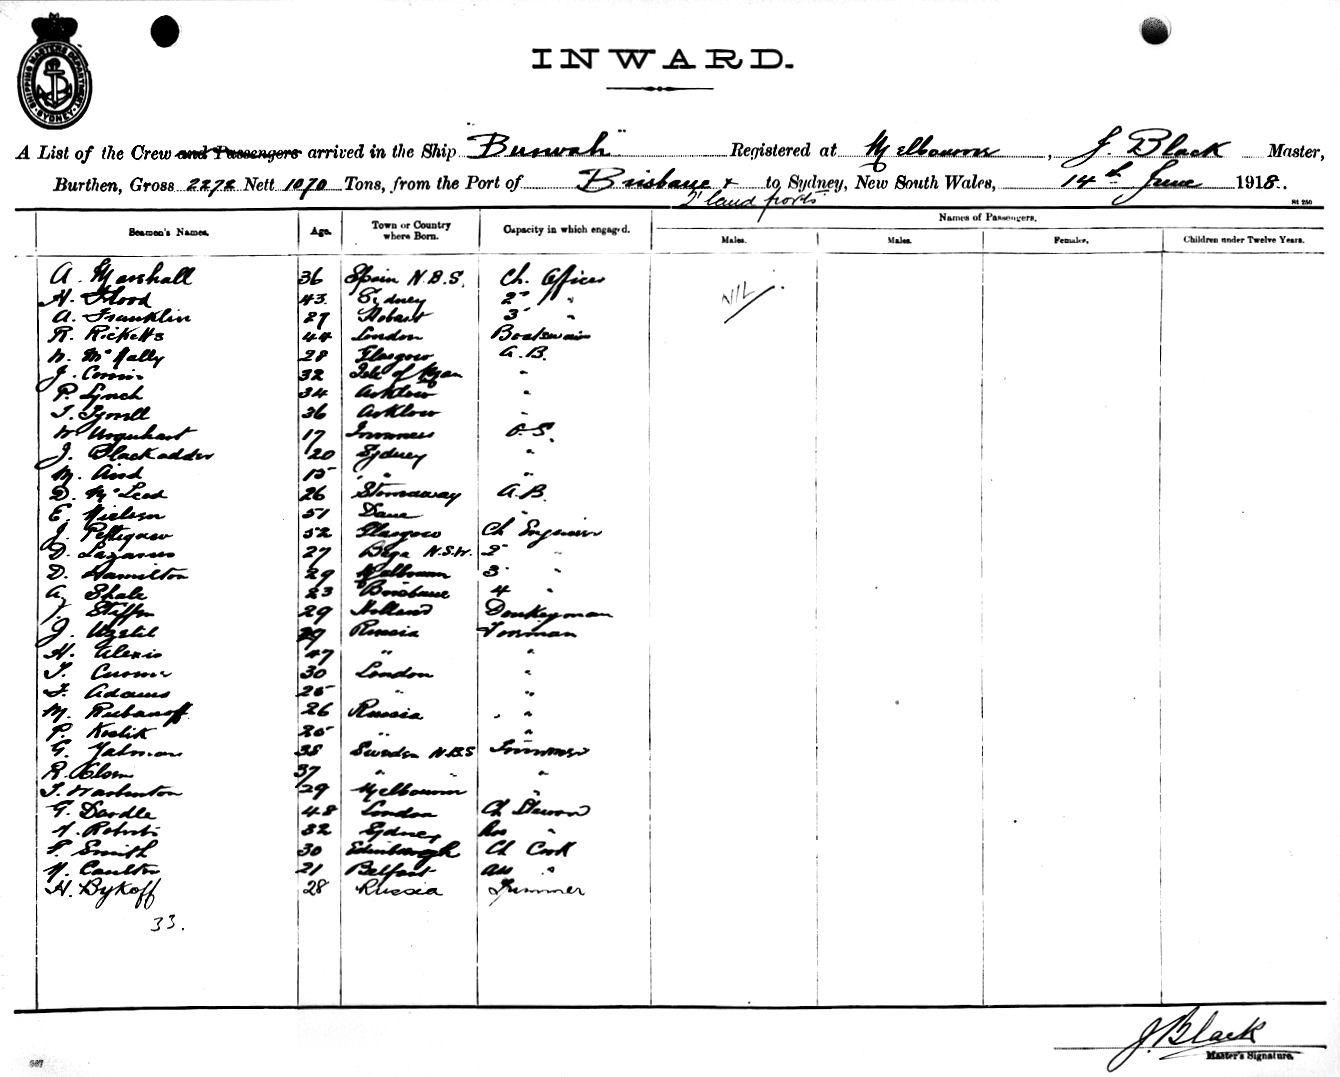 SHIPPING MASTERS DEPARTMENT
SYDNEY
INWARD.
A List of the Crew and Passengers arrived in the Ship "Burwah" Registered at Melbourne, J. Black Master,
Burthen, Gross 2272 Nett 1070 Tons, from the Port of Brisbane & to Sydney, New South Wales, 14th June 1918.
Q'land ports
St 250
Names of Passengers.
Seamen's Names. Age. Town or Country where Born. Capacity in which engaged. Males. Males. Females. Children under Twelve Years.
A. Marshall 36 Spain N.B.S. Ch. Officer NIL
H. Flood 43 Sydney 2nd "
A. Franklin 27 Hobart 3 "
R. Ricketts 44 London Boatswain
W. McNally 28 Glasgow A.B.
J. 32 Isle of Man "
P. Lynch 34 Arklow "
T. Tyrrell 36 Arklow "
W. Urquhart 17 Inverness O.S.
J. Blackadder 20 Sydney "
M. 15 " "
D. McLeod 26 Stornaway A.B.
E. Nielsen 51 Dane "
J. Pettigrew 52 Glasgow Ch Engineer
D. Lazarus 27 Bega N.S.W. 2 "
D. Hamilton 29 Melbourne 3 "
A. Shale 23 Brisbane 4 "
29 Holland Donkeyman
J. 29 Russia Fireman
H. Alexis 47 " "
T. 30 London "
F. Adams 25 " "
M. Rubanoff 26 Russia "
P. Koslik 25 " "
G. 38 Sweden N.B.S Trimmer
R. 37 " " "
T. Warburton 29 Melbourne "
G. Dowdle 48 London Ch Steward
Roberts 32 Sydney Ass "
Smith 30 Edinburgh Ch Cook
Coulter 21 Belfast Ass "
H. Bykoff 28 Russia Trimmer
33.
J. Black
Master's Signature.